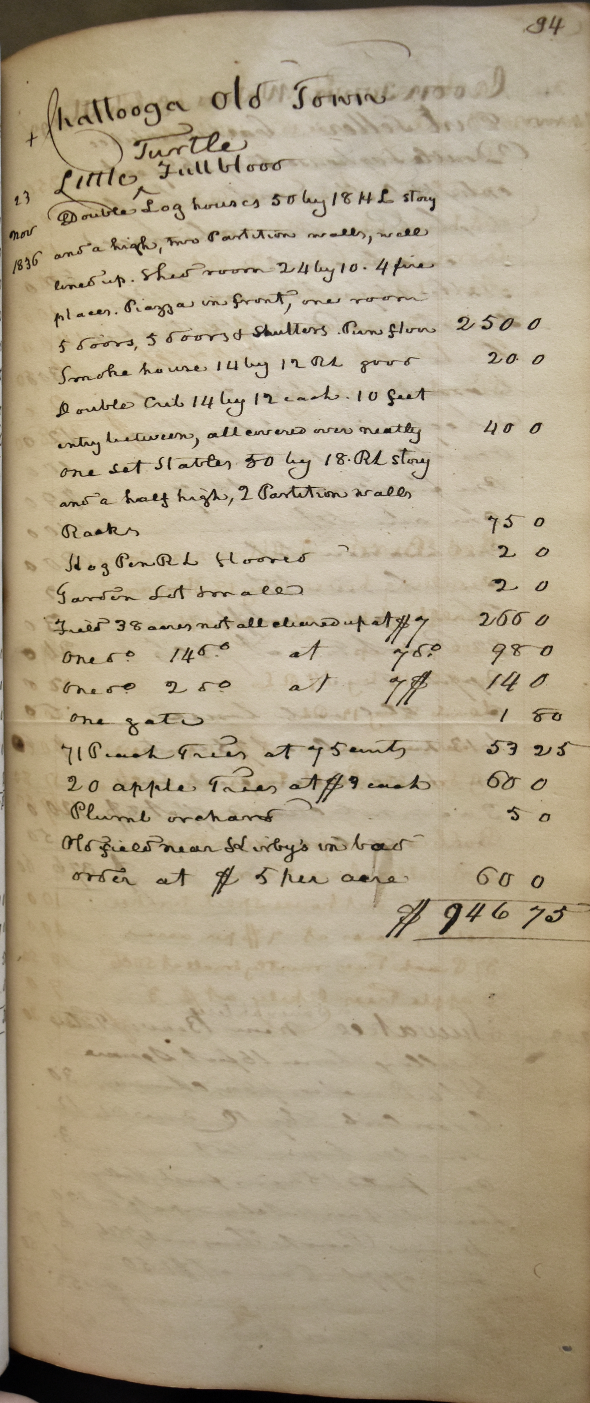 94
+ Chattooga Old Town
Turtle
Little ^ Fullblood
23
Nov
1836
Double Log houses 50 by 18 HL story
and a high, two Partition walls, well
lined up. Shed room 24 by 10. 4 fire
places. Piazza in front, one room
5 doors, 5 doors & Shutters. Pun floor 250 0
Smoke house 14 by 12 RL good 20 0
Double Crib 14 by 12 each. 10 feet
entry between, all covered over neatly 40 0
one set Stables 50 by 18. RL story
and a half high, 2 Partition walls
Racks 75 0
Hog Pen RL floored 2 0
Garden Lot small 2 0
Field 38 acres not all cleared up at $7 266 0
One do 14 do at 7 do 98 0
One do 2 do at 7$ 14 0
One gate 1 50
71 Peach Trees at 75 cents 53 25
20 apple Trees at $3 each 60 0
Plumb orchard 5 0
Old field near Kirbys in bad
order at $ 5 per acre 60 0
$ 946 75